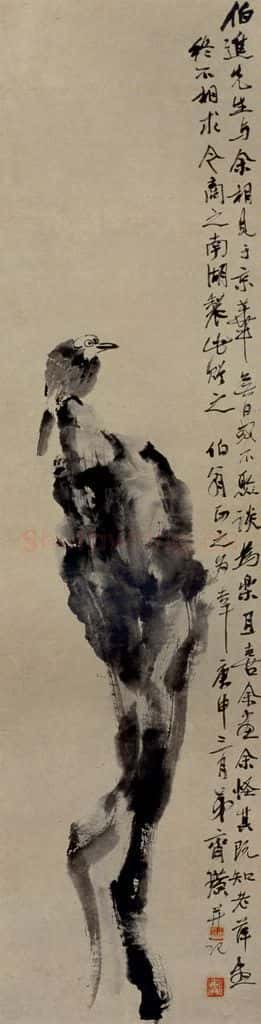 伯進先生与余相見于京華無日或不聚談為樂且喜余畫余怪其既知老萍畫
終不相求今商之南湖製此贈之伯翁正之為幸庚申三月弟齊璜并記